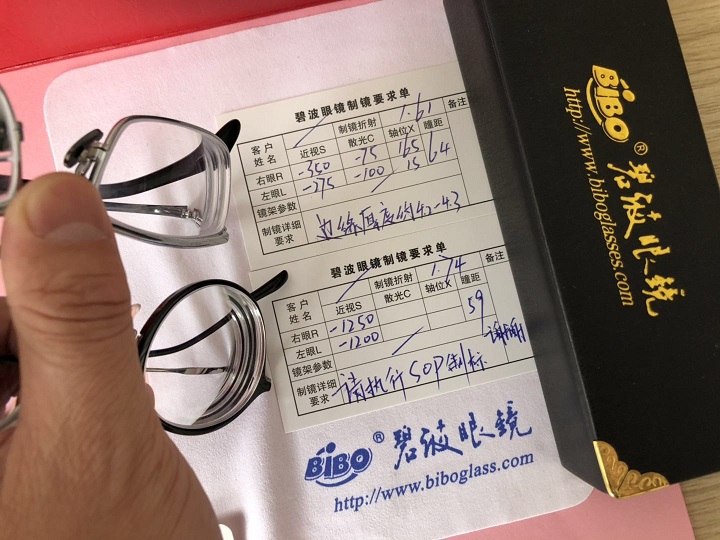 碧波眼镜制镜要求单
客户姓名 制镜折射 1.61 备注
近视S 散光C 轴位X 瞳距
右眼R -350 -75 165 64
左眼L -275 -100 15
镜架参数
制镜详细要求 边缘厚度约4.2-4.3
碧波眼镜制镜要求单
客户姓名 制镜折射 1.74 备注
近视S 散光C 轴位X 瞳距
右眼R -1250 59
左眼L -1200
镜架参数
制镜详细要求 请执行SOP制标 谢谢
BiBO® 碧波眼镜
http://www.biboglass.com
BiBO® 碧波眼镜
http://www.biboglasses.com